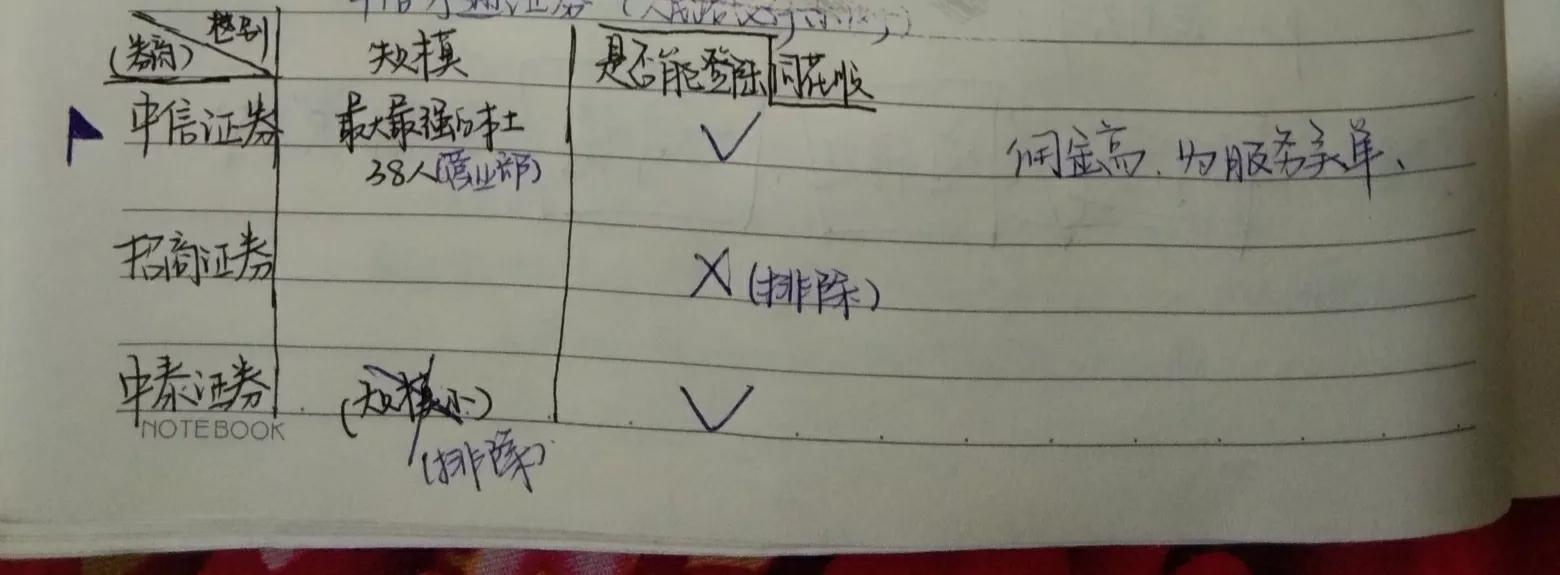 (券商)
规模
是否能登陆同花顺
中信证券
最大最强的本土
38人(营业部)
✓
佣金高、为服务买单、
招商证券
X (排除)
中泰证券
(规模小)
✓
(排除)
NOTEBOOK